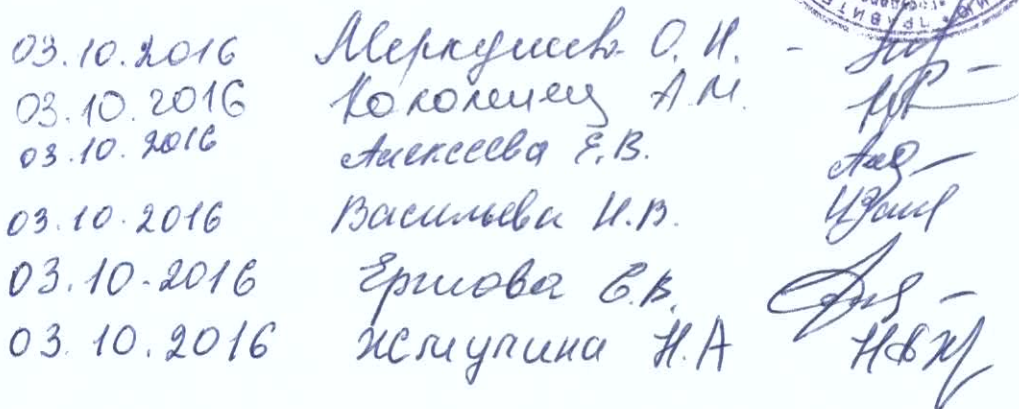 03.10.2016 Меркушева О.Н. -
03.10.2016 Коломиец А.М.
03.10.2016 Алексеева Е.В.
03.10.2016 Васильева Н.В.
03.10.2016 Ершова С.В.
03.10.2016 Жмучина Н.А